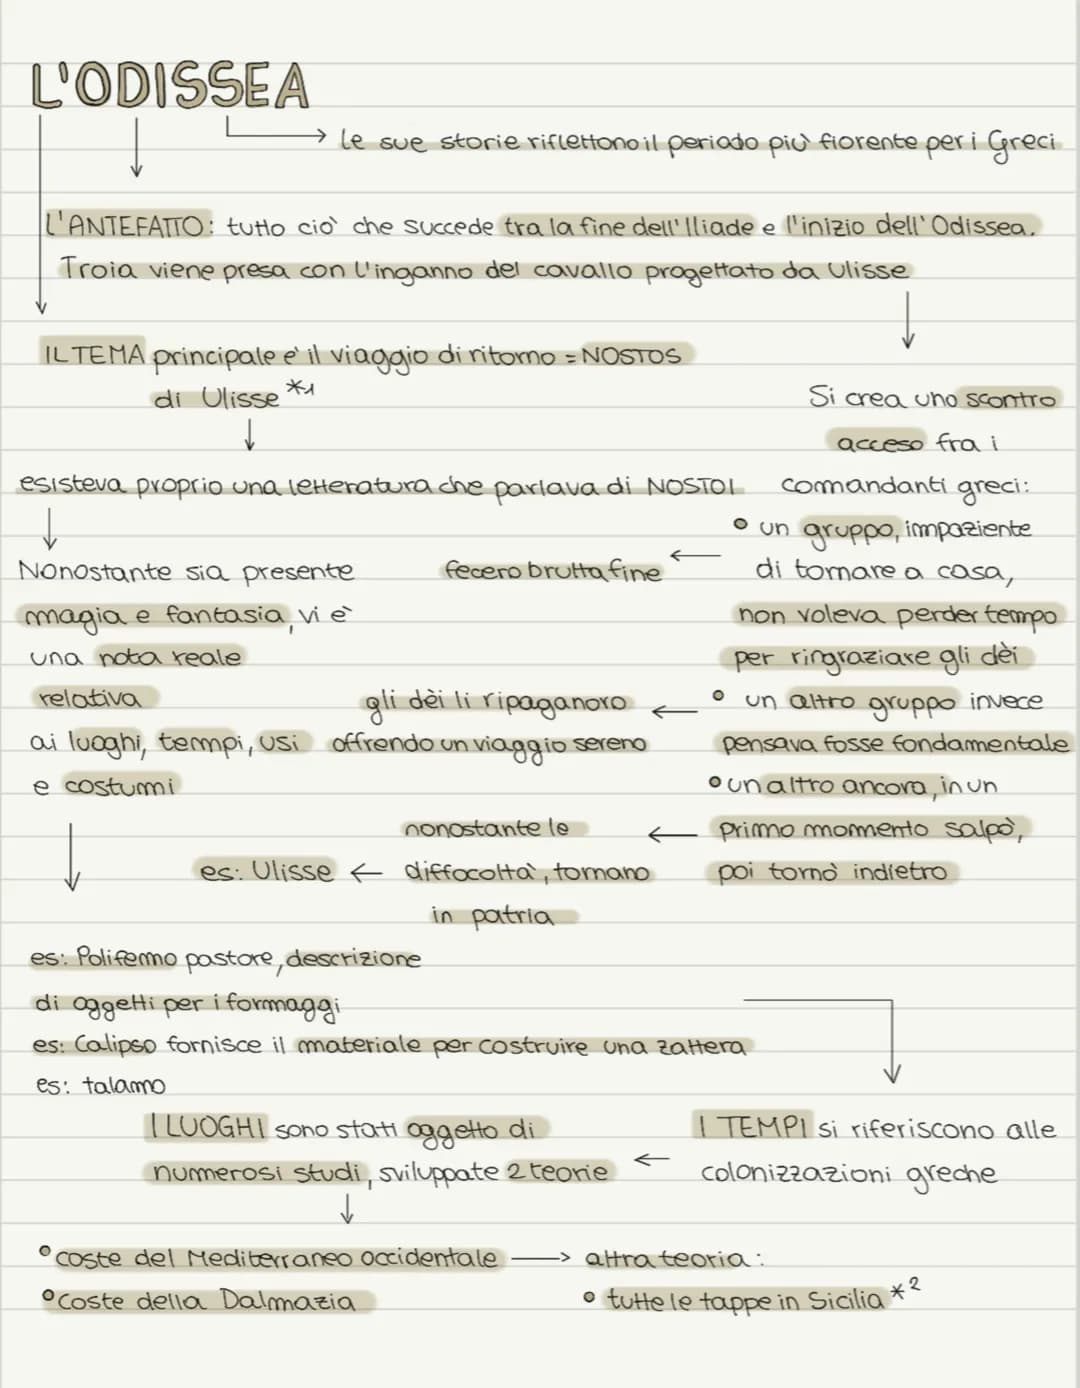 L'ODISSEA
le sue storie riflettono il periodo più fiorente per i Greci
L'ANTEFATTO: tutto ciò che succede tra la fine dell'Iliade e l'inizio dell'Odissea.
Troia viene presa con l'inganno del cavallo progettato da Ulisse
IL TEMA principale e' il viaggio di ritorno = NOSTOS
di Ulisse *1
esisteva proprio una letteratura che parlava di NOSTOI
Nonostante sia presente
magia e fantasia, vi è
una nota reale
relativa
ai luoghi, tempi, usi
e costumi
Si crea uno scontro
acceso fra i
comandanti greci:
• un gruppo, impaziente
di tornare a casa,
non voleva perder tempo
per ringraziare gli dèi
fecero brutta fine
• un altro gruppo invece
pensava fosse fondamentale
gli dèi li ripaganoro
offrendo un viaggio sereno
• un altro ancora, in un
primo momento salpò,
poi tornò indietro
nonostante le
diffocoltà, tornano
in patria
es: Ulisse
es: Polifemo pastore, descrizione
di oggetti per i formaggi
es: Calipso fornisce il materiale per costruire una zattera
es: talamo
I TEMPI si riferiscono alle
colonizzazioni greche
I LUOGHI sono stati oggetto di
numerosi studi, sviluppate 2 teorie
• coste del Mediterraneo occidentale
• coste della Dalmazia
altra teoria:
• tutte le tappe in Sicilia *2